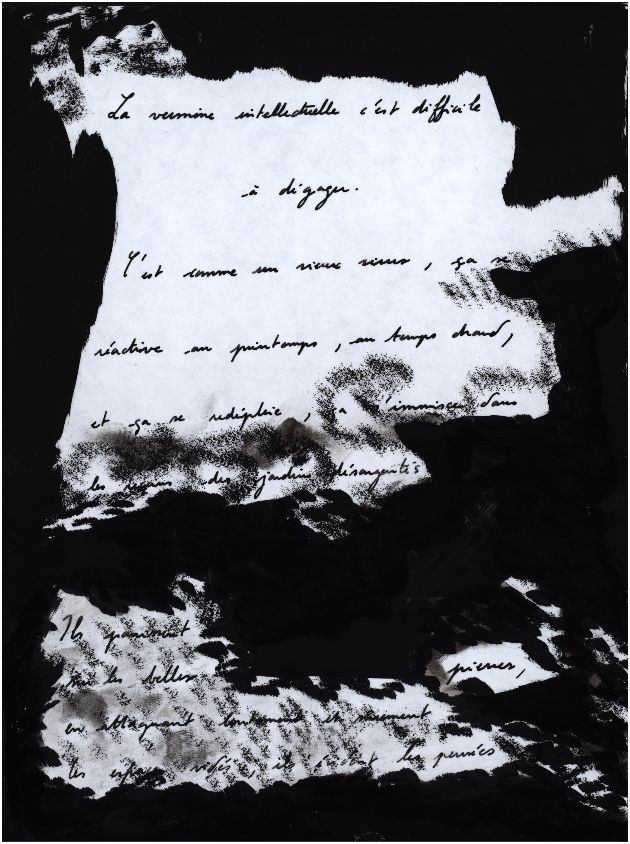 La vermine intellectuelle c'est difficile
à dégager.
C'est comme un vieux virus, ça se
réactive au printemps, au temps chaud,
et ça se redéploie, s'immisce dans
les des jardins désargentés
Ils
les belles pierres,
en attaquant lentement et
les esprits, ils les pensées